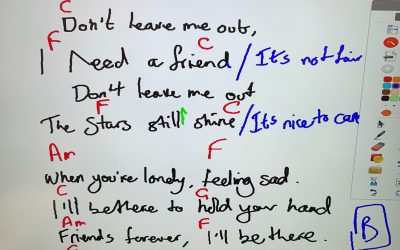 C
Don't leave me out,
F C
I Need a friend / It's not fair
Don't leave me out
F C
The Stars still shine / It's nice to care
Am F
When you're lonely, feeling sad.
C C
I'll be there to hold your hand
Am F
Friends forever, I'll be there.
B